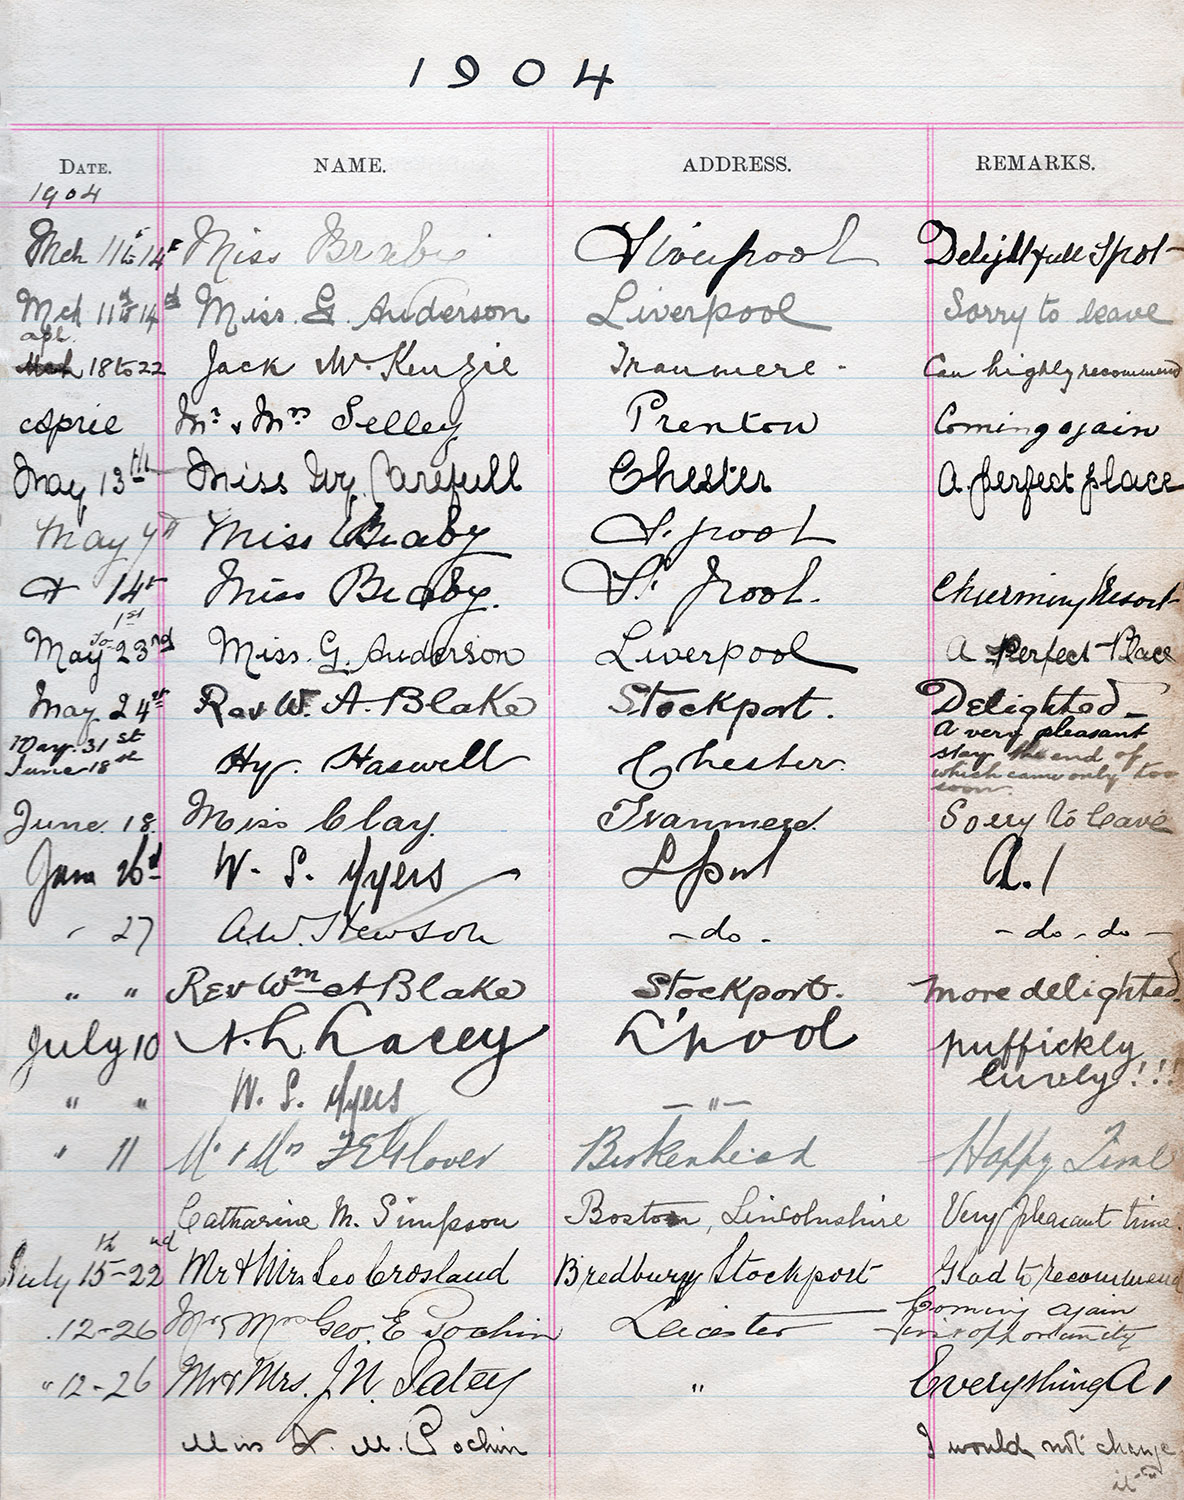 1904
DATE. NAME. ADDRESS. REMARKS.
1904
Mch 11 to 14 Miss Liverpool Delightfull Spot
Mch 11th to 14th Miss. G. Anderson Liverpool Sorry to leave
apl. 18 to 22 Jack McKenzie Tranmere. Can highly recommend
April Mr & Mrs Selley Prenton Coming again
May 13th Miss Ivy Carefull Chester A perfect place
May 7th Miss L.pool
14 Miss L.pool. Charming Resort
May 1st to 23rd Miss. G. Anderson Liverpool A Perfect Place
May 24th Rev W. A. Blake Stockport. Delighted
May 31st June 18th Hy. Haswell Chester. A very pleasant
stay the end of
which came only too
soon.
June. 18. Miss Clay. Tranmere. Sorry to leave
June 26th W. S. Myers Lpool A.1
" 27 A.W. Hewson -do- -do-do-
" " Rev Wm A Blake Stockport. More delighted.
July 10 A. L. Lacey L'pool puffickly
luvely!!!
" " W. S. Myers -"-
" 11 Mr & Mrs F E Glover Birkenhead Happy Time
Catharine M. Simpson Boston, Lincolnshire Very pleasant time.
July 15th-22nd Mr & Mrs Leo Crosland Bredbury Stockport Glad to recommend
" 12-26 Mr & Mrs Geo. E. Pochin Leicester Coming again
first opportunity
" 12-26 Mr & Mrs. J. N. " Everything A1
Miss M. Pochin I would not change
it